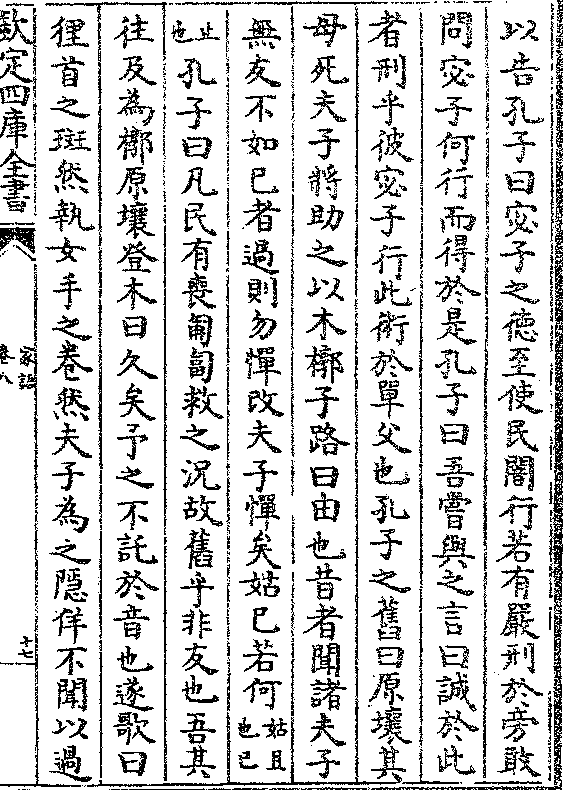 以告孔子曰宓子之德至使民闇行若有嚴刑於旁敢
問宓子何行而得於是孔子曰吾嘗與之言曰誠於此
者刑乎彼宓子行此術於單父也孔子之舊曰原壤其
母死夫子將助之以木槨子路曰由也昔者聞諸夫子
無友不如已者過則勿憚改夫子憚矣姑已若何姑且也已
止也孔子曰凡民有喪匍匐救之況故舊乎非友也吾其
往及為槨原壤登木曰久矣予之不託於音也遂歌曰
狸首之斑然執女手之卷然夫子為之隠佯不聞以過
欽定四庫全書
家語
卷八
十七